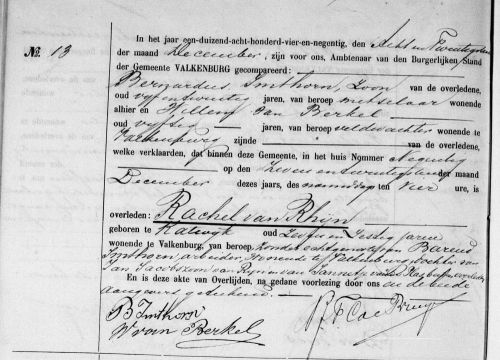 In het jaar een-duizend-acht-honderd-vier-en-negentig, den Acht en Twintigsten
No. 13 der maand December, zijn voor ons, Ambtenaar van den Burgerlijken Stand
der Gemeente VALKENBURG gecompareerd:
Bernardus Imthorn, Zoon van de overledene,
oud vijf en twintig jaren, van beroep metselaar wonende
alhier en Willem van Berkel
oud vijftig jaren, van beroep veldwachter wonende te
Valkenburg zijnde van de overledene,
welke verklaarden, dat binnen deze Gemeente, in het huis Nommer negentig
op den Zeven en twintigsten der maand
December dezes jaars, des namiddags ten vier ure, is
overleden: Rachel van Rhijn
geboren te Katwijk oud Zestig jaren
wonende te Valkenburg, van beroep, zonder echtgenoote van Barend
Imthorn, arbeider, wonende te Valkenburg, dochter van
Jan Jacobszoon van Rijn en van Jannetje overleden
En is deze akte van Overlijden, na gedane voorlezing door ons en de beide
aangevers geteekend.
B Imthorn
W van Berkel